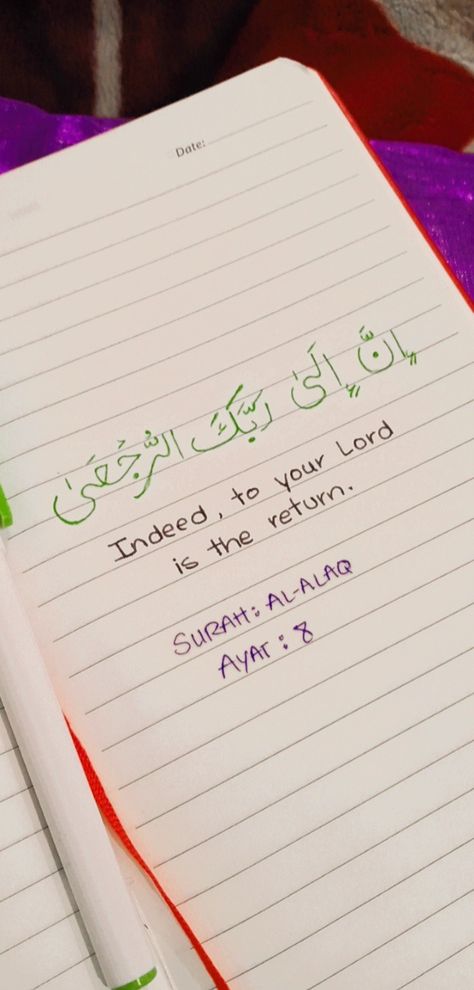 Date:
إِنَّ إِلَىٰ رَبِّكَ الرُّجْعَىٰ
Indeed, to your Lord
is the return.
SURAH: AL-ALAQ
AYAT: 8